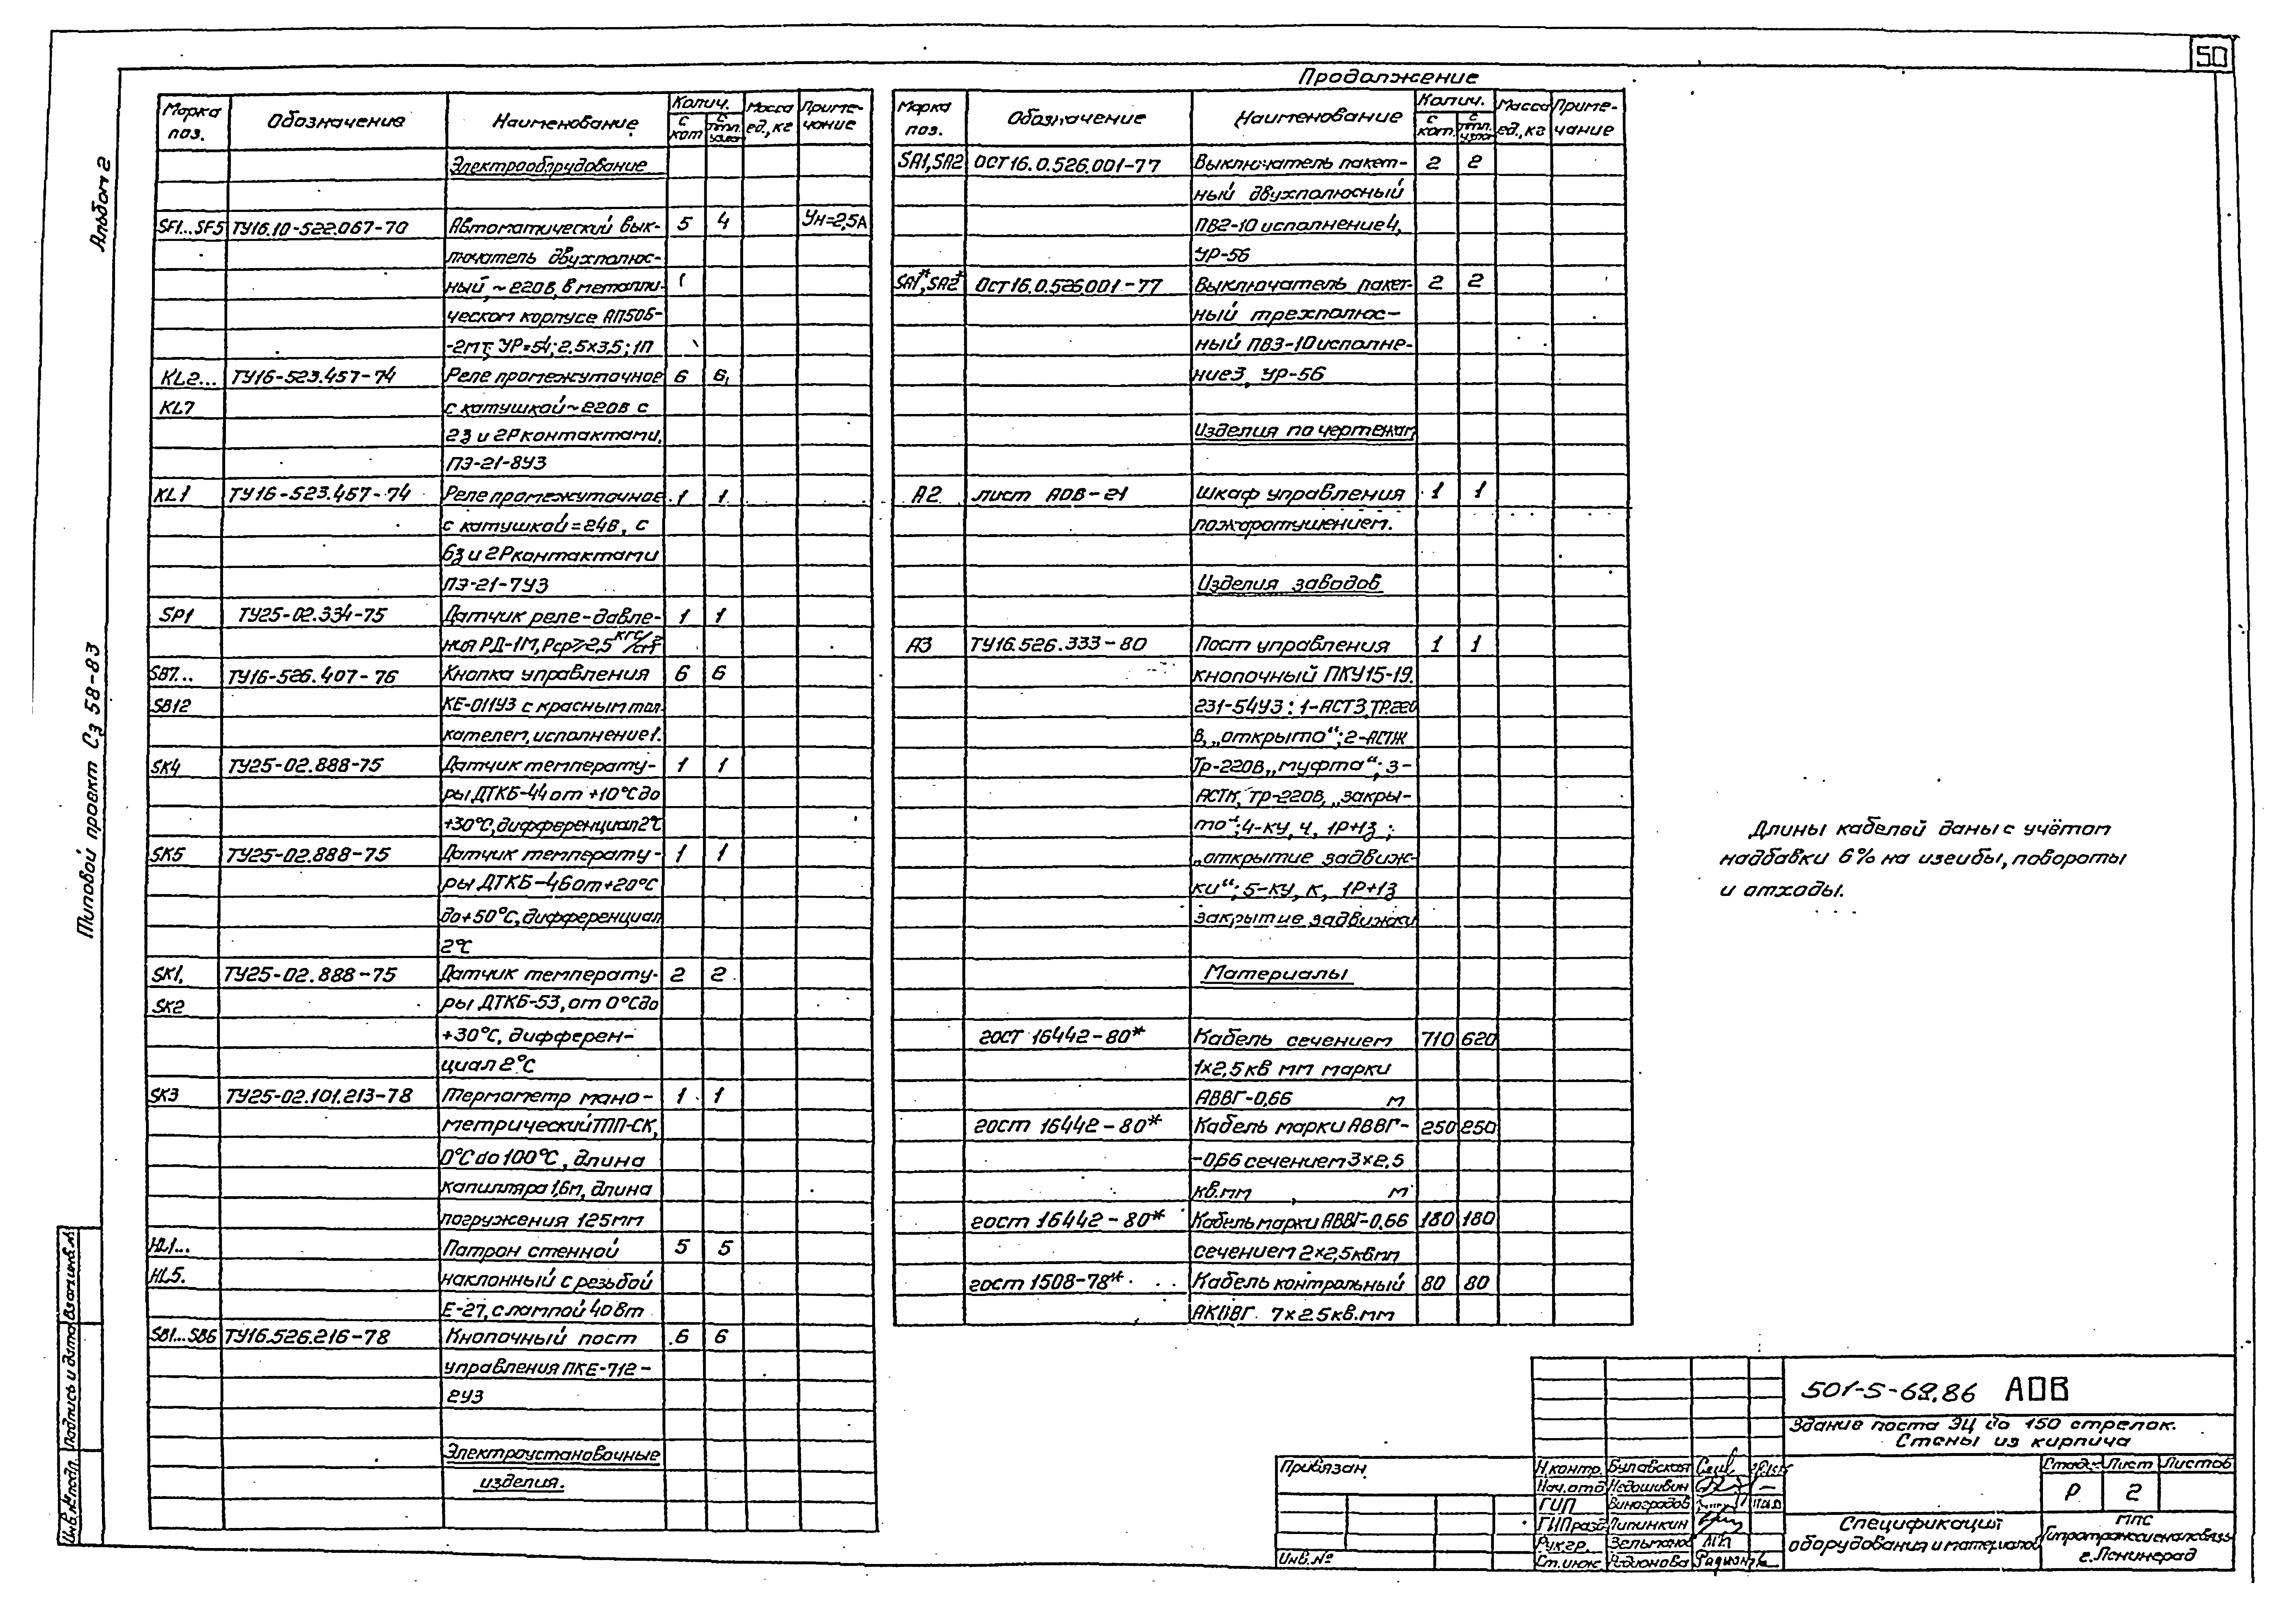 50
Альбом 2
Типовой проект Сз 58-83
Марка поз.
Обозначение
Наименование
Колич.
с кот.
с тепл. узлом
Масса ед., кг
Приме-
чание
Электрооборудование
SF1...SF5 ТУ16.10-522.067-70 Автоматический вык- 5 4 Ун=2,5А
лючатель двухполюс-
ный, ~220в, в металли-
ческом корпусе АП50Б-
-2МТ, УР=54; 2,5х3,5; 1П
KL2... ТУ16-523.457-74 Реле промежуточное 6 6
KL7 с катушкой ~220в с
2з и 2Р контактами,
ПЭ-21-8У3
KL1 ТУ16-523.457-74 Реле промежуточное 1 1
с катушкой =24в, с
6з и 2Р контактами
ПЭ-21-7У3
SP1 ТУ25-02.334-75 Датчик реле-давле- 1 1
ния РД-1М, Рср≥2,5 кгс/см²
SB7... ТУ16-526.407-76 Кнопка управления 6 6
SB12 КЕ-011У3 с красным тол-
кателем, исполнение 1.
SK4 ТУ25-02.888-75 Датчик температу- 1 1
ры ДТКБ-44 от +10°С до
+30°С, дифференциал 2°С
SK5 ТУ25-02.888-75 Датчик температу- 1 1
ры ДТКБ-46 от +20°С
до +50°С, дифференциал
2°С
SK1, ТУ25-02.888-75 Датчик температу- 2 2
SK2 ры ДТКБ-53, от 0°С до
+30°С, дифферен-
циал 2°С
SK3 ТУ25-02.101.213-78 Термометр мано- 1 1
метрический ТПП-СК,
0°С до 100°С, длина
капилляра 1,6м, длина
погружения 125мм
HL1... Патрон стенной 5 5
HL5. наклонный с резьбой
Е-27, с лампой 40Вт
SB1...SB6 ТУ16.526.216-78 Кнопочный пост 6 6
управления ПКЕ-712-
2У3
Электроустановочные
изделия.
Продолжение
Марка поз.
Обозначение
Наименование
Колич.
с кот.
с тепл. узлом
Масса ед., кг
Приме-
чание
SA1, SA2 ОСТ16.0.526.001-77 Выключатель пакет- 2 2
ный двухполюсный
ПВ2-10 исполнение 4,
УР-56
SA1*, SA2* ОСТ16.0.526.001-77 Выключатель пакет- 2 2
ный трехполюс-
ный ПВ3-10 исполне-
ние 3, УР-56
Изделия по чертежам
А2 лист АОВ-21 Шкаф управления 1 1
пожаротушением.
Изделия заводов
А3 ТУ16.526.333-80 Пост управления 1 1
кнопочный ПКУ15-19.
231-54У3: 1-АСТЗ, ТР.220
в, „открыто“; 2-АСТЖ
Тр-220в „муфта“; 3-
АСТК, Тр-220в, „закры-
то“; 4-КУ, Ч, 1Р+1з;
„открытие задвиж-
ки“; 5-КУ, К, 1Р+1з
закрытие задвижки
Материалы
ГОСТ 16442-80* Кабель сечением 710 620
1х2,5кв мм марки
АВВГ-0,66 м
ГОСТ 16442-80* Кабель марки АВВГ- 250 250
-0,66 сечением 3х2,5
кв.мм м
ГОСТ 16442-80* Кабель марки АВВГ-0,66 180 180
сечением 2х2,5кв.мм
ГОСТ 1508-78* Кабель контрольный 80 80
АКВВГ 7х2.5кв.мм
Длины кабелей даны с учётом
надбавки 6% на изгибы, повороты
и отходы.
Инв.№подл. Подпись и дата Взам.инв.№
Привязан
Инв.№
Н.контр. Булавская
Нач.отд Недошивин
ГИП Виноградов
ГИПразд Липинкин
Рук.гр.
Ст.инж Родионова
501-5-62.86 АОВ
Здание поста ЭЦ до 150 стрелок.
Стены из кирпича
Стадия Лист Листов
Р 2
Спецификация
оборудования и материалов
МПС
Гипротранссигналсвязь
г. Ленинград